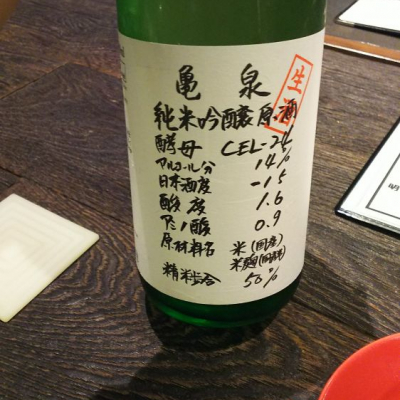 亀泉
生酒
純米吟醸原酒
酵母 CEL-24
アルコール分 14%
日本酒度 -15
酸度 1.6
アミノ酸 0.9
原材料名 米(国産)
米麹(国産米)
精米歩合 50%